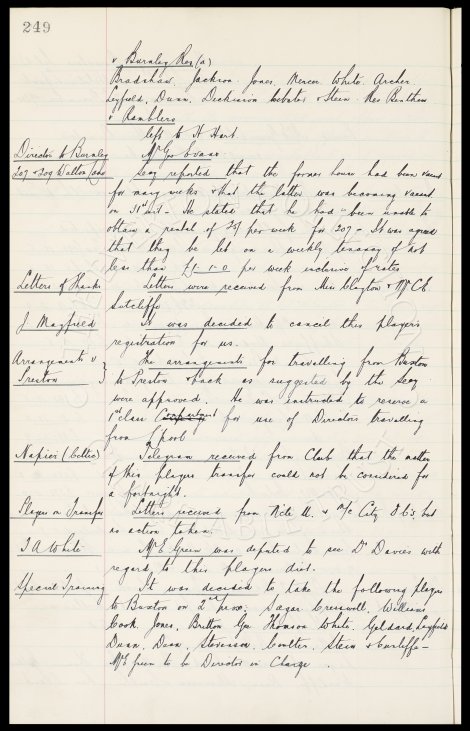 249
v Burnley Res (a)
Bradshaw. Jackson. Jones. Mercer. White. Archer.
Leyfield. Dunn. Dickinson Webster & Stein. Res Renthem
v Ramblers
left to H Hart
Director to Burnley
Mr Geo Evans
207 & 209 Walton Lane
Secy reported that the former house had been vacant
for many weeks & that the latter was becoming vacant
on 31st inst. He stated that he had been unable to
obtain a rental of 25/- per week for 207 - It was agreed
that they be let on a weekly tenancy of not
less than £1-1-0 per week inclusive of rates
Letters of Thanks
Letters were received from Miss Clayton & Mr C E
Sutcliffe
J Mayfield
It was decided to cancel this players
registration for us.
Arrangements v
Preston
The arrangements for travelling from Buxton
to Preston & back as suggested by the Secy
were approved. He was instructed to reserve a
1st class for use of Directors travelling
from L'pool
Napier (Celtic)
Telegram received from Club that the matter
of this players transfer could not be considered for
a fortnight.
Players on Transfer
Letters received from Ncle U. & M/c City F C's, but
no action taken.
T A White
Mr E Green was deputed to see Dr Davies with
regard to this players diet.
Special Training
It was decided to take the following players
to Buxton on 2nd prox. Sagar Cresswell. Williams
Cook. Jones. Britton Gee Thomson White. Geldard. Leyfield
Dunn. Dean. Stevenson. Coulter. Stein & Cunliffe -
Mr E Green to be Director in Charge.